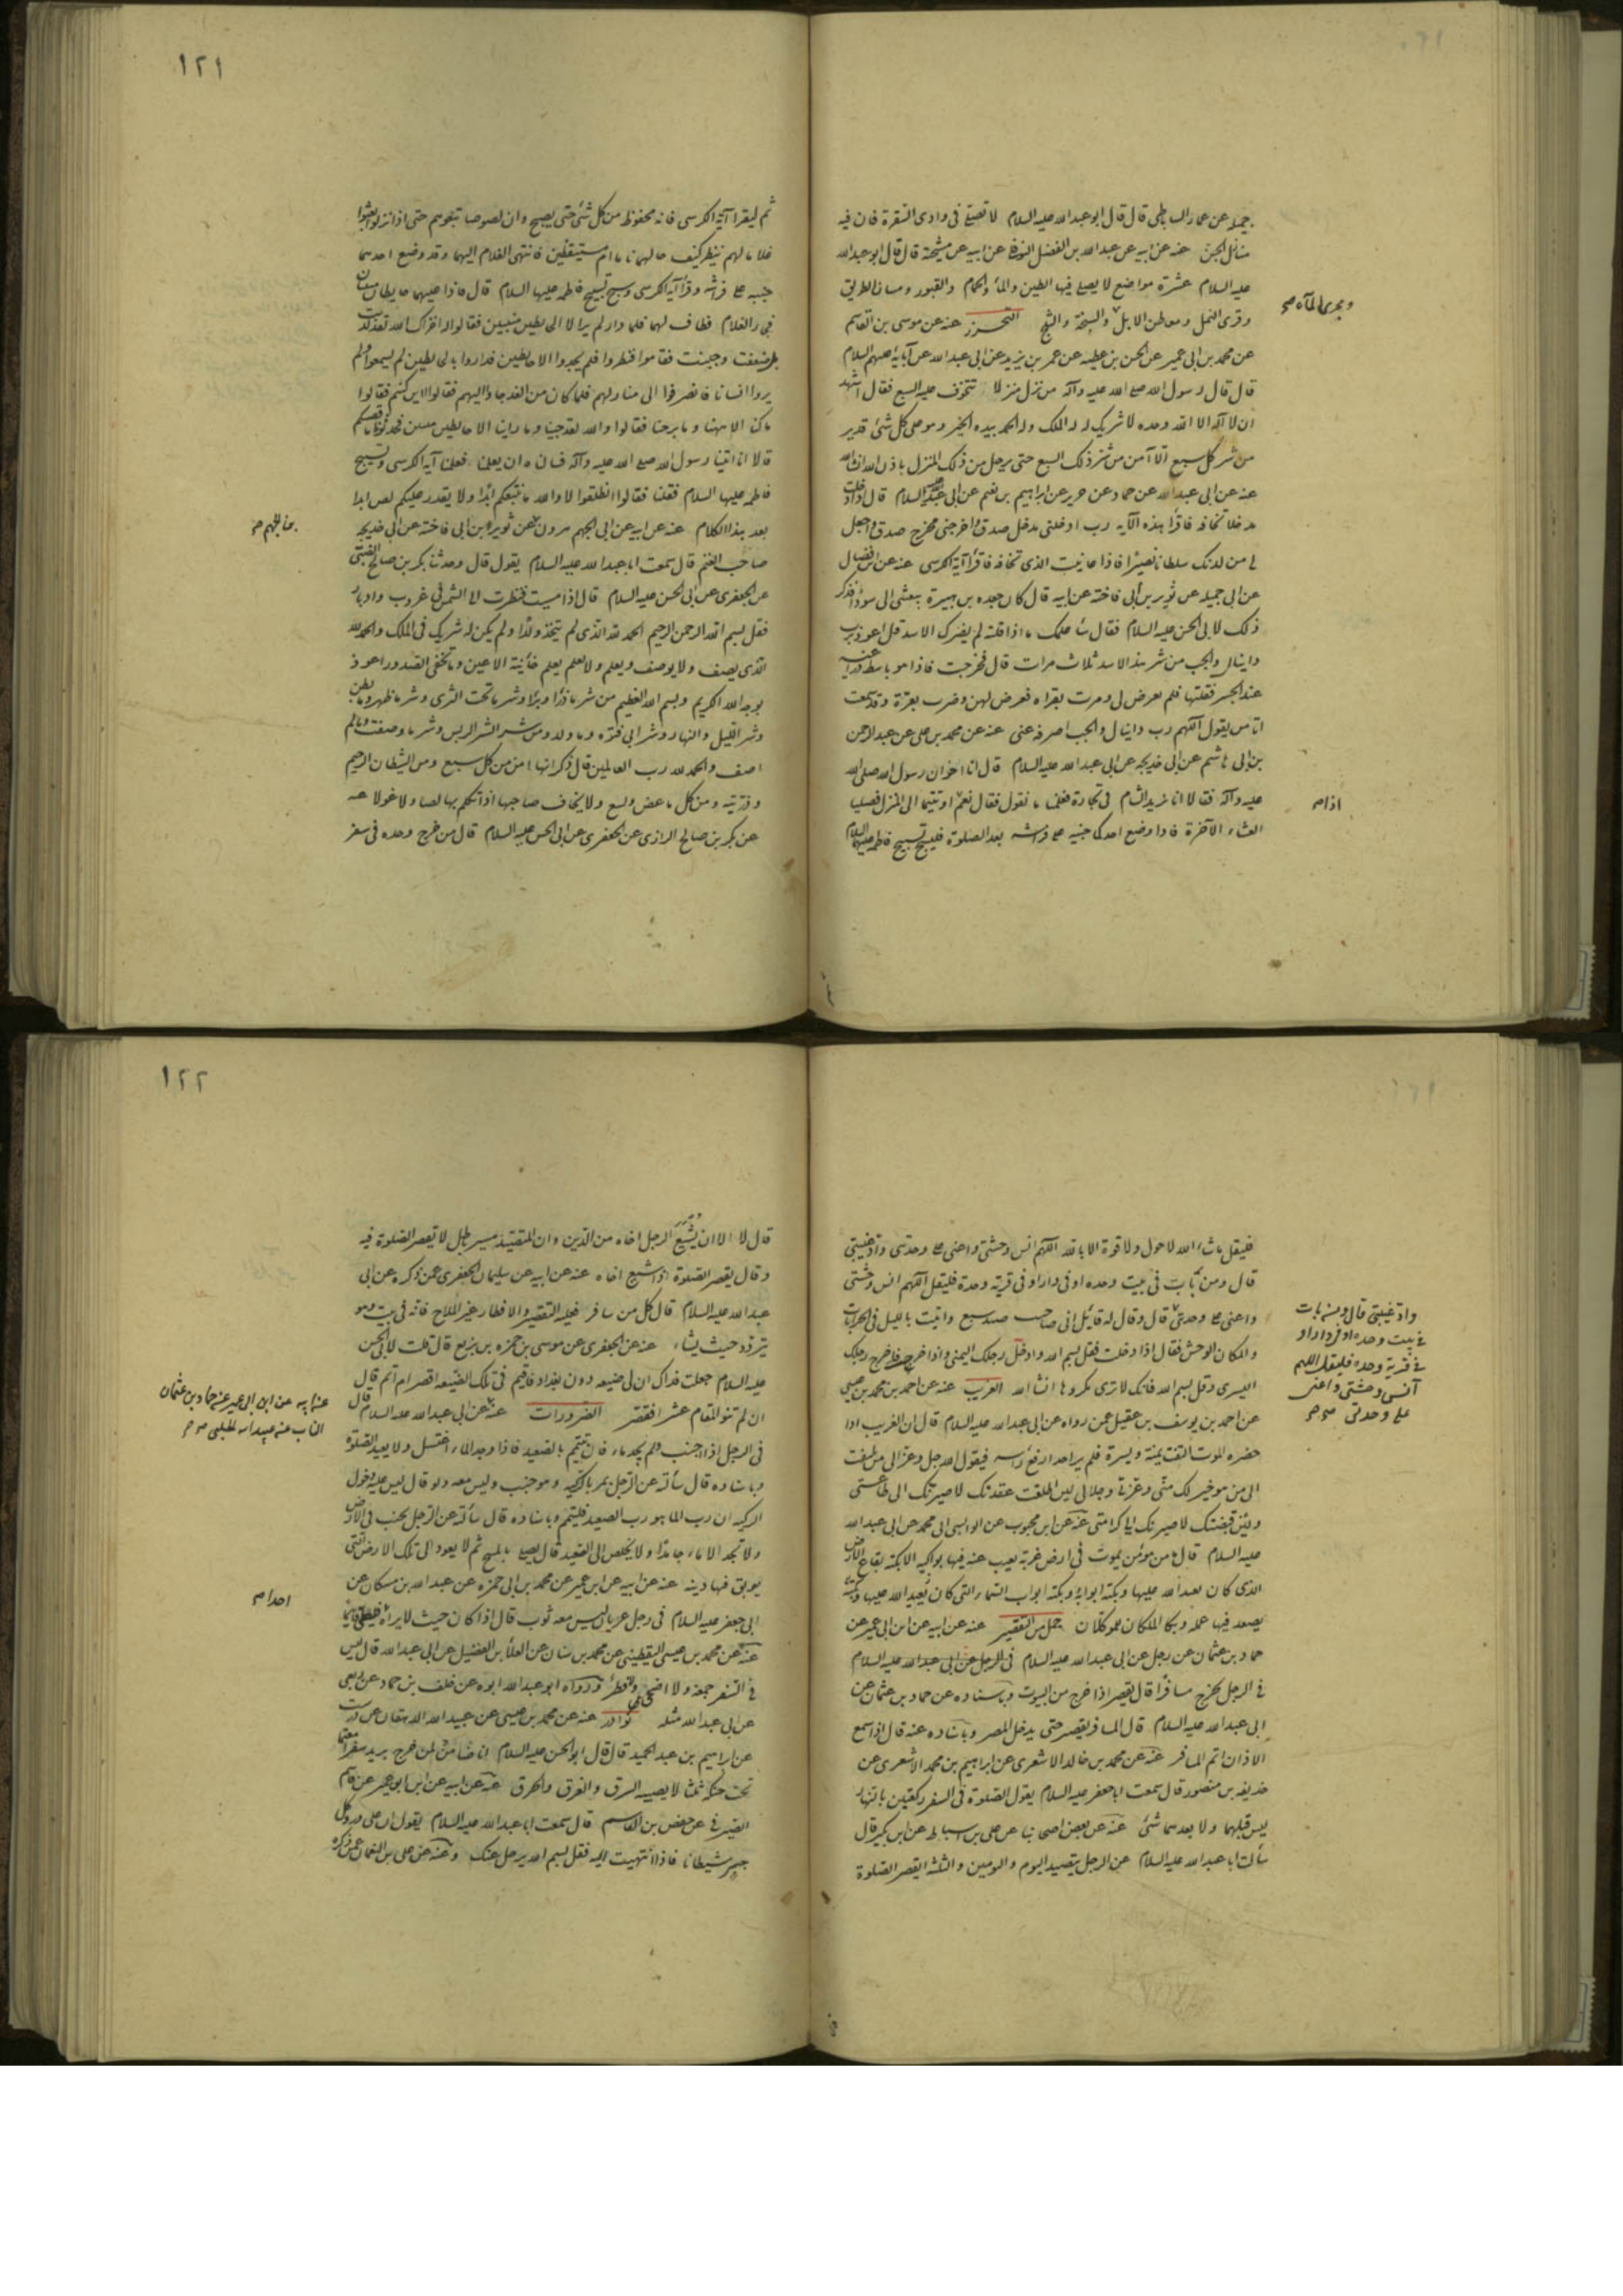 جميله عن عمار الساباطي قال قال ابو عبدالله عليه السلام لا تصلى فى وادى الشقرة فان فيه
منازل الجن عنه عن ابيه عن عبدالله بن الفضل النوفلى عن ابيه عن مشيخته قال قال ابو عبدالله
عليه السلام عشرة مواضع لا يصلى فيها الطين والماء والحمام والقبور ومسان الطريق
وقرى النمل ومعاطن الابل والسبخة والثلج التحرز عنه عن موسى بن القاسم
ومجرى الماء صح
عن محمد بن ابى عمير عن الحسن بن عطيه عن عمر بن يزيد عن ابى عبدالله عن آبايه عليهم السلام
قال قال رسول الله صلى الله عليه وآله من نزل منزلا تتخوف عليه السبع فقال اشهد
ان لا اله الا الله وحده لا شريك له له الملك وله الحمد بيده الخير وهو على كل شئ قدير
من شر كل سبع الا آمن من شر ذلك السبع حتى يرحل من ذلك المنزل باذن الله انشاالله
عنه عن ابى عبدالله عن حماد عن حريز عن ابراهيم بن نعيم عن ابى عبدالله عليه السلام قال اذا دخلت
مدخلا تخافه فاقرا هذه الآيه رب ادخلنى مدخل صدق واخرجنى مخرج صدق واجعل
لى من لدنك سلطانا نصيرا فاذا عاينت الذى تخافه فاقرا آية الكرسى عنه عن ابن فضال
عن ابى جميله عن ثوير بن ابى فاخته عن ابيه قال كان جعده بن هبيرة يبعثنى الى سورا فذكر
ذلك لابى الحسن عليه السلام فقال سأعلمك ما اذا قلته لم يضرك الاسد قل اعوذ برب
دانيال والجب من شر هذا الاسد ثلاث مرات قال فخرجت فاذا هو باسط ذراعيه
عند الجسر فقلتها فلم يعرض لى ومرت بقرات فعرض لهن وضرب بقرة وقد سمعت
انا من يقول اللهم رب دانيال والجب اصرفه عنى عنه عن محمد بن على عن عبدالرحمن
بن ابى هاشم عن ابى خديجه عن ابى عبدالله عليه السلام قال اتا اخوان رسول الله صلى الله
عليه وآله فقالا انا نريد الشام فى تجارة فعلمنا ما نقول فقال نعم اويتما الى المنزل فصليا
اذا م
العشاء الآخرة فاذا وضع احدكما جنبه على فراشه بعد الصلوة فليسبح تسبيح فاطمه عليها السلام
١٢١
ثم ليقرا آية الكرسى فانه محفوظ من كل شئ حتى يصبح وان لصوصا تبعوهم حتى اذا نزلوا بعثوا
غلاما لهم ينظر كيف حالهما ناما ام مستيقظين فانتهى الغلام اليهما وقد وضع احدهما
جنبه على فراشه وقرا آية الكرسى وسبح تسبيح فاطمه عليها السلام قال فاذا عليهما حايطان مبنيان
فجاء الغلام فطاف بهما فلما دار لم ير الا حايطين مبنيين فقالوا له اخزاك الله لقد كذبت
بل ضعفت وجبنت فقاموا فنظروا فلم يجدوا الا حايطين فداروا بالحايطين لم يسمعوا ولم
يروا انسانا فانصرفوا الى منازلهم فلما كان من الغد جاؤا اليهم فقالوا اين كنتم فقالوا
ما كنا الا ههنا وما برحنا فقالوا والله لقد جينا وما راينا الا حايطين مبنيين فحدثونا ما قصتكم
قالا انا اتينا رسول الله صلى الله عليه وآله فسالناه ان يعلمنا فعلمنا آية الكرسى وتسبيح
فاطمه عليها السلام فقلنا فقالوا انطلقوا لا والله ما نتبعكم ابدا ولا يقدر عليكم لص ابدا
بعد هذا الكلام عنه عن ابيه عن ابى الجهم هرون عن ثوير بن ابى فاخته عن ابى خديجه
صاحب الغنم قال سمعت اباعبدالله عليه السلام يقول قال وحدثنا بكر بن صالح الضبى
عن الجعفرى عن ابى الحسن عليه السلام قال اذا امسيت فنظرت الى الشمس فى غروب وادبار
فقل بسم الله الرحمن الرحيم الحمد لله الذى لم يتخذ ولدا ولم يكن له شريك فى الملك والحمد لله
الذى يصف ولا يوصف ويعلم ولا يعلم يعلم خائنة الاعين وما تخفى الصدور اعوذ
بوجه الله الكريم وبسم الله العظيم من شر ما ذرا وبرا وشر ما تحت الثرى وشر ما ظهر وما بطن
وشر الليل والنهار وشر ابى قتره وما ولد ومن شر الرسيس وشر ما وصفت وما لم
اصف والحمد لله رب العالمين قال ذكر انها امن من كل سبع ومن الشيطان الرجيم
وذريته ومن كل ما عض ولسع ولا يخاف صاحبها اذا تكلم بها لصا ولا غولا عنه
عن بكر بن صالح الرازى عن الجعفرى عن ابى الحسن عليه السلام قال من خرج وحده فى سفر
فليقل ما شاء الله لا حول ولا قوة الا بالله اللهم انس وحشتى واعنى على وحدتى واد غيبتى
قال ومن بات فى بيت وحده او فى دار او فى قرية وحده فليقل اللهم انس وحشتى
واعنى على وحدتى قال وقال له قايل انى صاحب صيد سبع وابيت بالليل فى الخرابات
واد غيبتى قال ومن بات
فى بيت وحده او فى دار او
فى قرية وحده فليقل اللهم
آنس وحشتى واعنى
على وحدتى صح
والمكان الوحش فقال اذا دخلت فقل بسم الله وادخل رجلك اليمنى واذا خرجت فاخرج رجلك
اليسرى وقل بسم الله فانك لا ترى مكروها انشاالله الغريب عنه عن احمد بن محمد بن عيسى
عن احمد بن يوسف بن عقيل عمن رواه عن ابى عبدالله عليه السلام قال ان الغريب اذا
حضره الموت التفت يمنة ويسرة فلم ير احدا رفع راسه فيقول الله جل وعز الى من تلتفت
الى من هو خير لك منى وعزتى وجلالى لين اطلقت عقدتك لاصيرنك الى طاعتى
ولين قبضتك لاصيرنك الى كرامتى عنه عن ابن محبوب عن الوابشى ابى محمد عن ابى عبدالله
عليه السلام قال ما من مؤمن يموت فى ارض غربة يغيب عنه فيها بواكيه الا بكته بقاع الارض
الذى كان يعبد الله عليها وبكته اثوابه وبكته ابواب السماء التى كان يصعد
يصعد فيها عمله وبكاه الملكان الموكلان جمل من التقصير عنه عن ابيه عن ابن ابى عمير عن
حماد بن عثمان عن رجل عن ابى عبدالله عليه السلام فى الرجل عن ابى عبدالله عليه السلام
فى الرجل يخرج مسافرا قال يقصر اذا خرج من البيوت وباسناده عن حماد بن عثمان عن
ابى عبدالله عليه السلام قال المسافر يقصر حتى يدخل المصر وباسناده عنه قال اذا سمع
الاذان اتم المسافر عنه عن محمد بن خالد الاشعرى عن ابراهيم بن محمد الاشعرى عن
حذيفه بن منصور قال سمعت اباجعفر عليه السلام يقول الصلوة فى السفر ركعتين بالنهار
ليس قبلهما ولا بعدهما شئ عنه عن بعض اصحابنا عن على بن اسباط عن ابن بكير قال
سالت اباعبدالله عليه السلام عن الرجل يتصيد اليوم واليومين والثلثة ايقصر الصلوة
١٢٢
قال لا الا ان يشيع الرجل اخاه من الدين وان المتصيد مسير باطل لا تقصر الصلوة فيه
وقال يقصر الصلوة اذا شيع اخاه عنه عن ابيه عن سليمان الجعفرى عمن ذكره عن ابى
عبدالله عليه السلام قال كل من سافر فعليه التقصير والافطار غير الملاح فانه فى بيت وهو
يتردد حيث يشاء عنه عن الجعفرى عن موسى بن حمزه بن بزيع قال قلت لابى الحسن
عليه السلام جعلت فداك ان لى ضيعه دون بغداد فاقيم فى تلك الضيعه اقصر ام اتم قال
ان لم تنو المقام عشرا فقصر الضرورات عنه عن ابى عبدالله عليه السلام قال
عنه عن ابيه عن ابن ابى عمير عن حماد بن عثمان
الناب عن عبيدالله الحلبى صح
فى الرجل اذا اجنب ولم يجد ماء قال تيمم بالصعيد فاذا وجد الماء اغتسل ولا يعيد الصلوة
وباسناده قال سألته عن الرجل يمر بالركيه وهو جنب وليس معه دلو قال ليس عليه دخول
الركيه ان رب الماء هو رب الصعيد فليتيمم وباسناده قال سألته عن الرجل يجنب فى الارض
ولا تجد الا ماء جامدا ولا يخلص الى الصعيد قال يصلى بالمسح ثم لا يعود الى تلك الارض التى
يوبق فيها دينه عنه عن ابيه عن ابن ابى عمير عن محمد بن ابى حمزه عن عبدالله بن مسكان عن
ابى جعفر عليه السلام فى رجل عريان ليس معه ثوب قال اذا كان حيث لا يراه فليصل قائما
احد ام
عنه عن محمد بن عيسى اليقطينى عن محمد بن سنان عن العلاء بن الفضيل عن ابى عبدالله قال ليس
فى السفر جمعة ولا اضحى ولا فطر ورواه ابو عبدالله ابوه عن خلف بن حماد عن ربعى
عن ابى عبدالله مثله نوادر عنه عن محمد بن عيسى عن عبيدالله الدهقان عن درست
عن ابراهيم بن عبد الحميد قال قال ابو الحسن عليه السلام انا ضامن لمن خرج يريد سفرا معتما
تحت حنكه ثلثا لا يصيبه السرق والغرق والحرق عنه عن ابيه عن ابن ابى عمير عن قاسم
الصيرفى عن حفص بن القاسم قال سمعت اباعبدالله عليه السلام يقول ان على ذروة كل
جسر شيطانا فاذا انتهيت اليه فقل بسم الله يرحل عنك وعنه عن على بن النعمان عمن ذكره